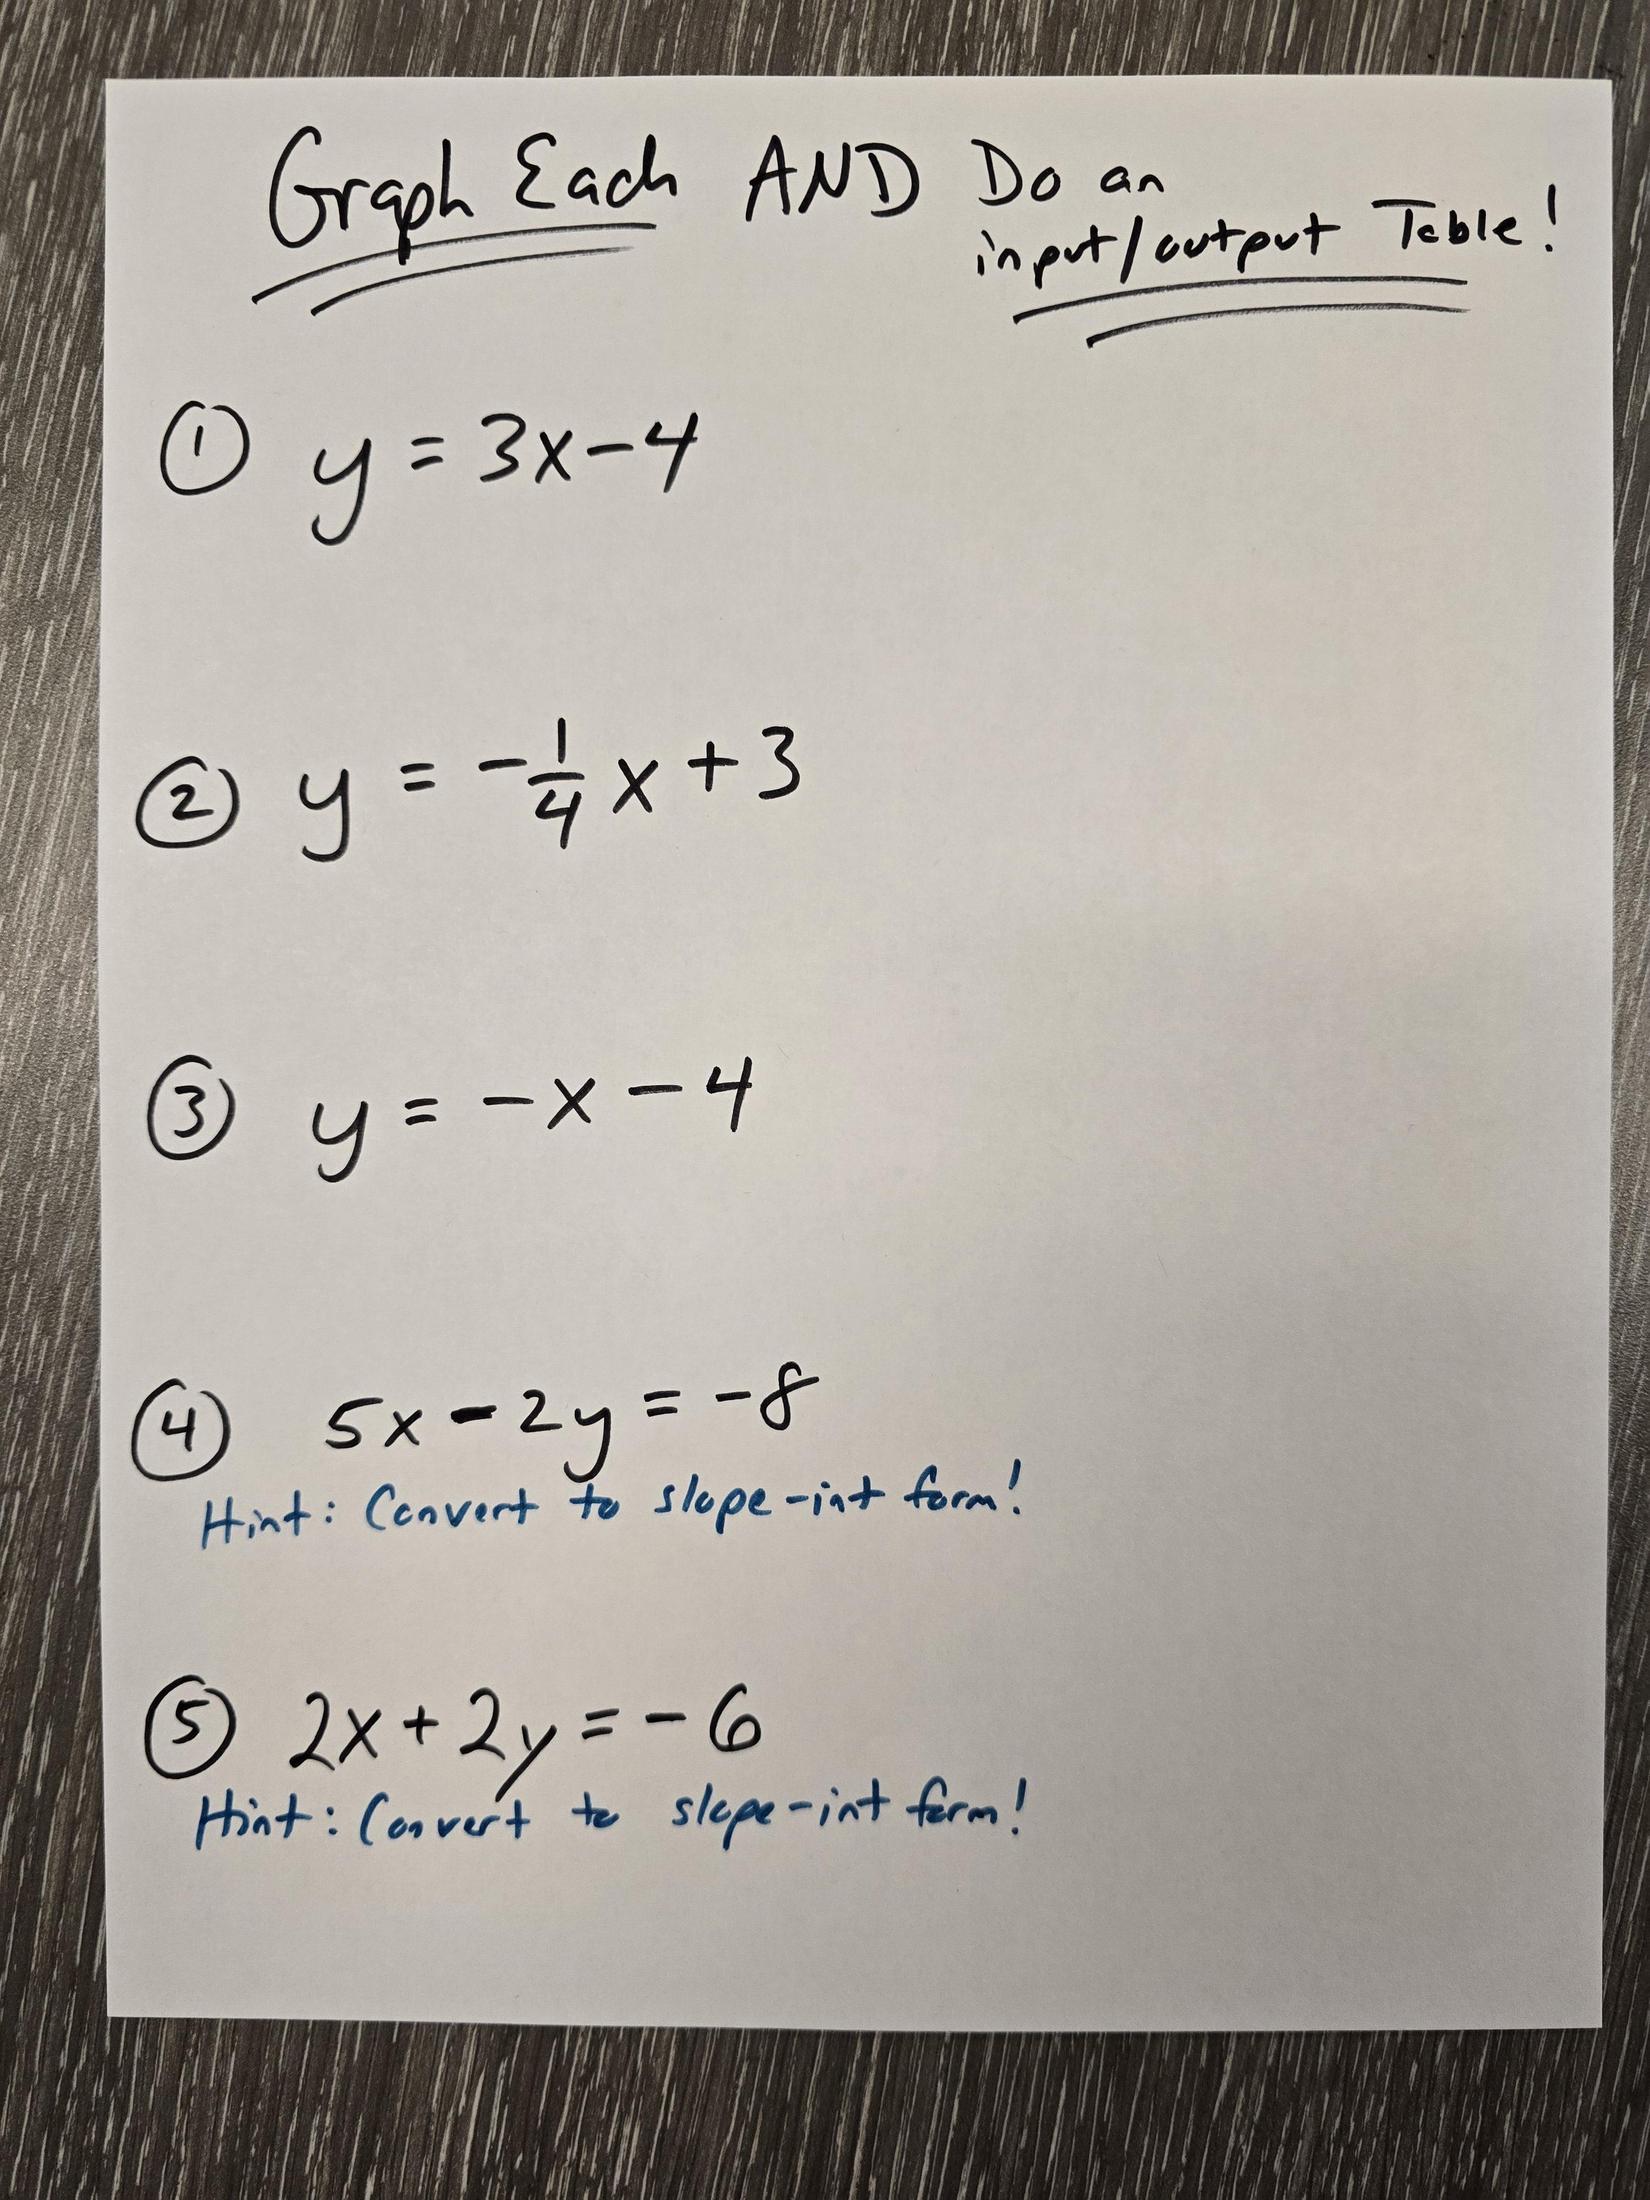 Graph Each AND Do an
input/output Table!
① y = 3x - 4
② y = -1/4 x + 3
③ y = -x - 4
④ 5x - 2y = -8
Hint: Convert to slope-int form!
⑤ 2x + 2y = -6
Hint: Convert to slope-int form!